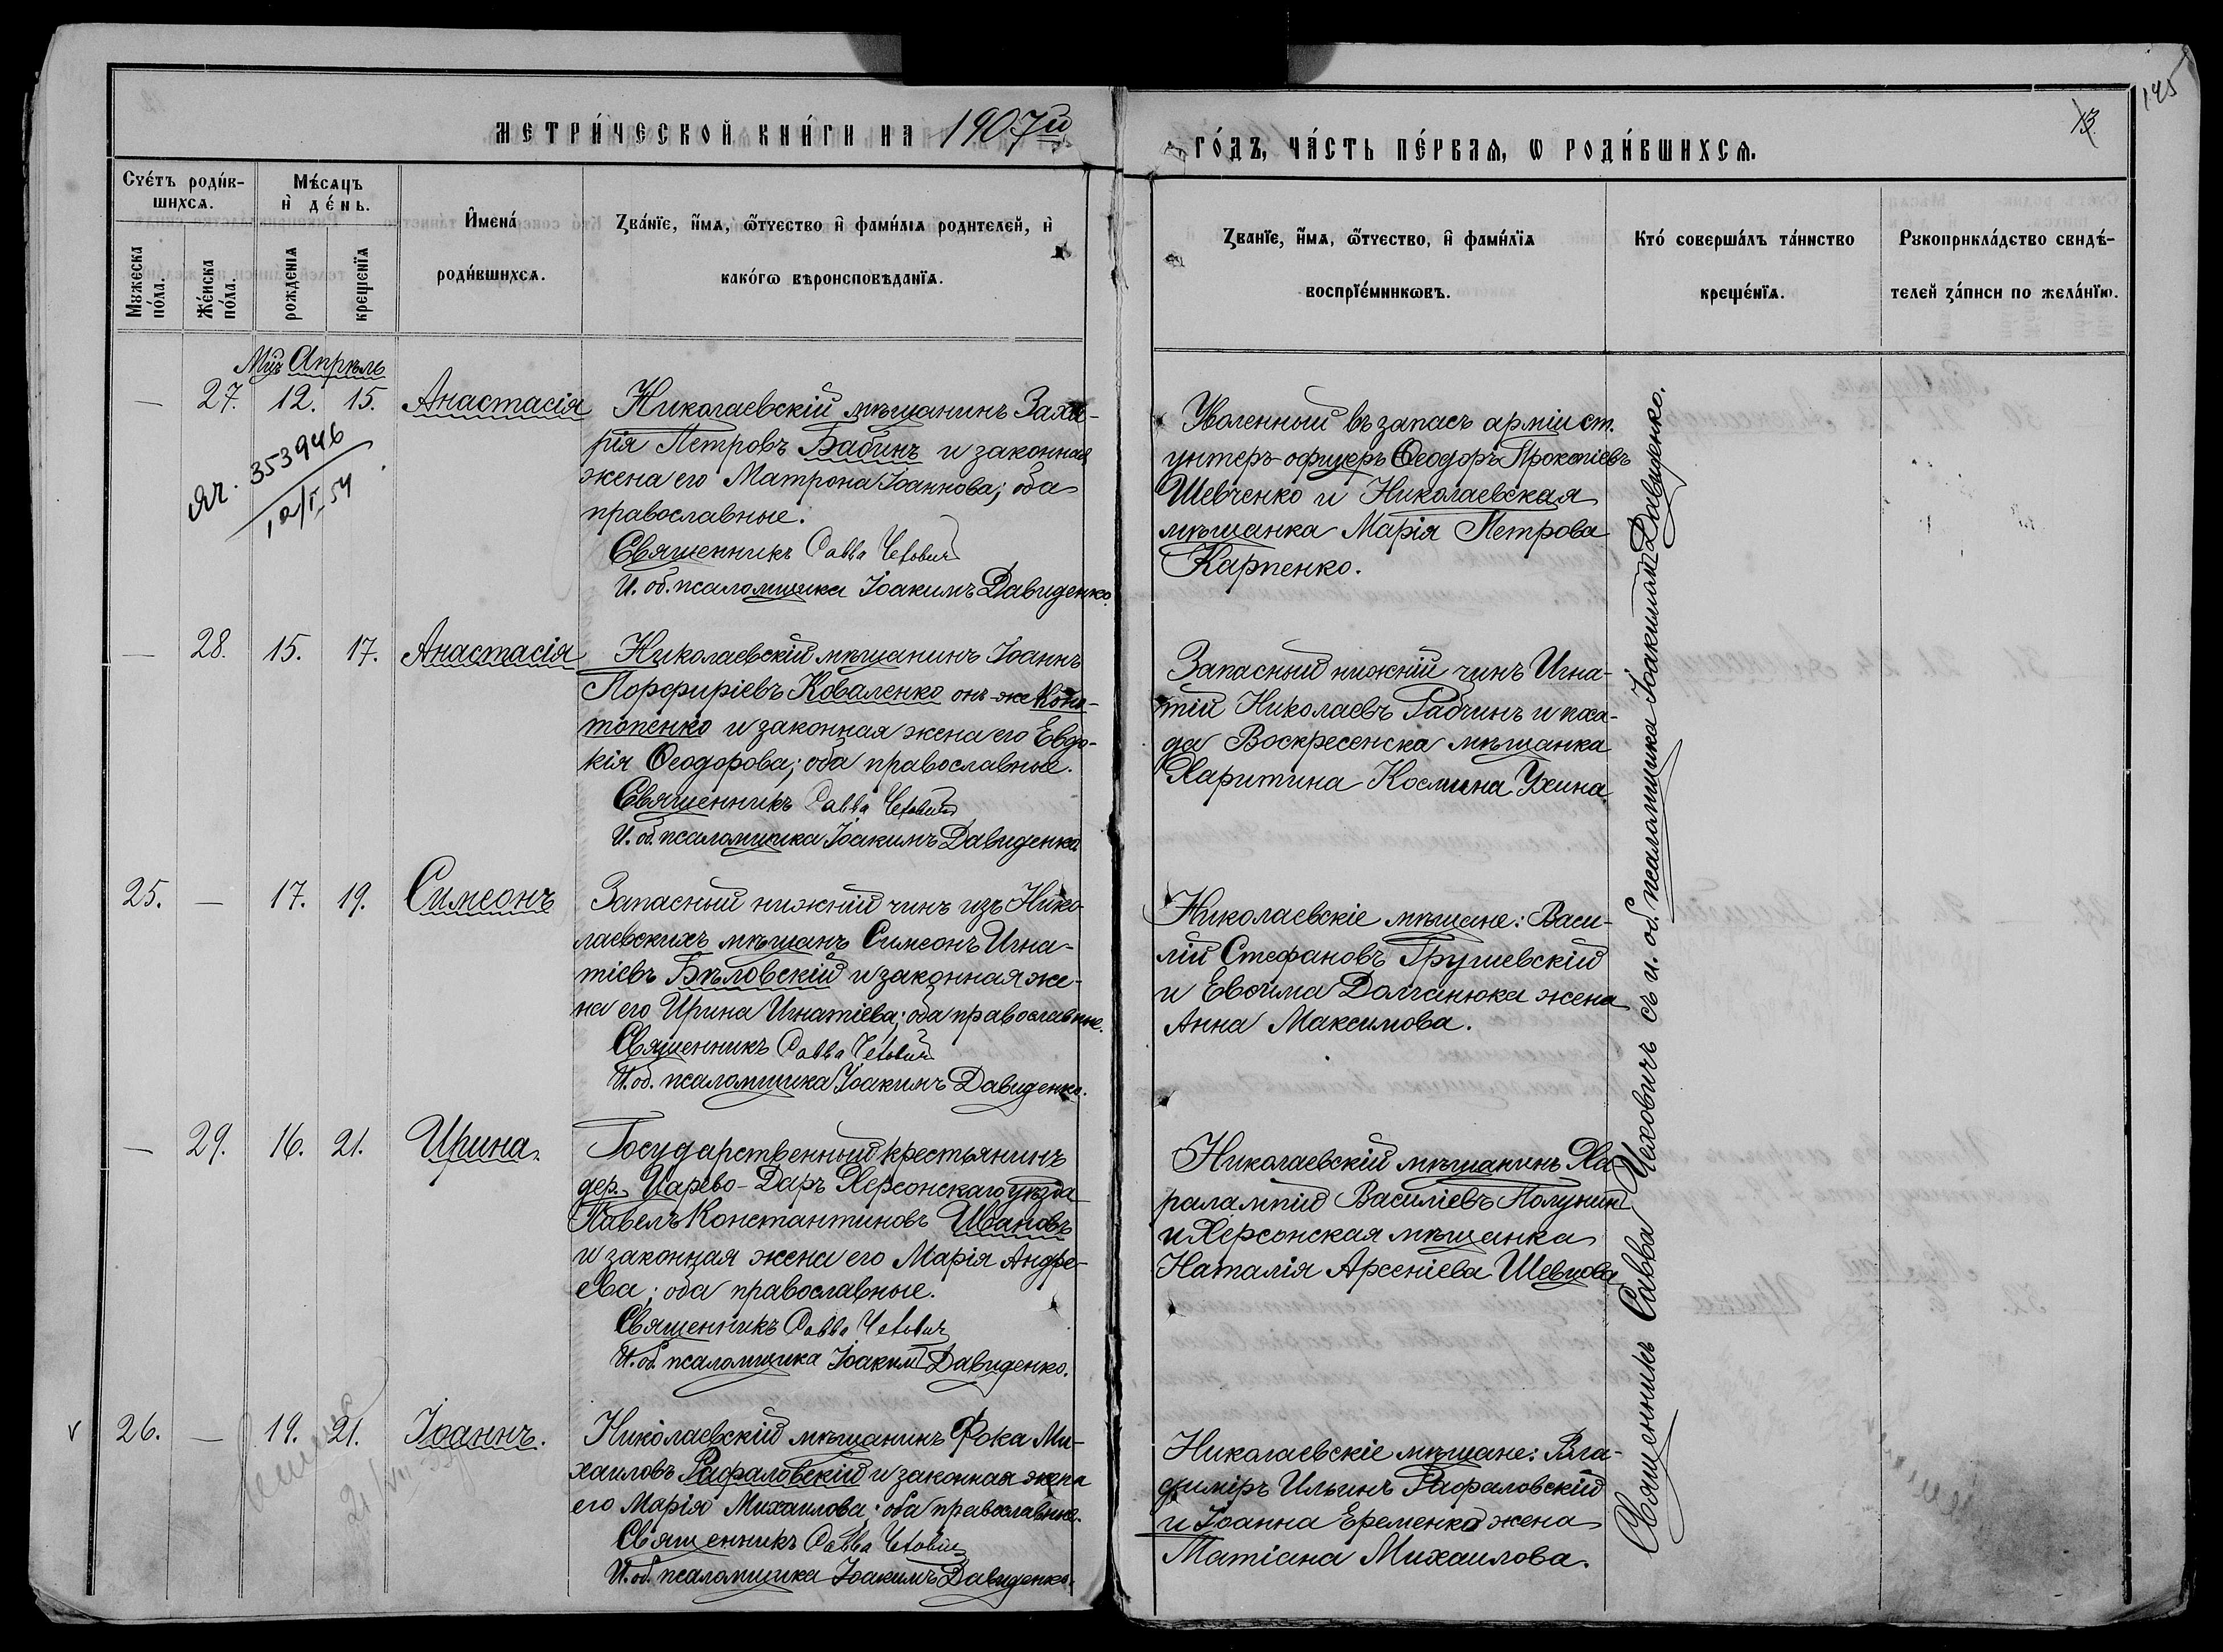 Метри́ческой кни́ги на 1907й
го́дъ, ча́сть пе́рваѧ, ѡ роди́вшихсѧ.
13.
145
Сче́тъ роди́в-
шихсѧ.
Мѣ́сѧцъ
и҆ де́нь.
И҆мена́
роди́вшихсѧ.
Зва́нїе, и҆́мѧ, ѻ҆́тчество и҆ фами́лїѧ родителей, и҆
како́гѡ вѣроисповѣданїѧ.
Зва́нїе, и҆́мѧ, ѻ҆́тчество, и҆ фами́лїѧ
воспрїе́мникѡвъ.
Кто́ соверша́лъ та́инство
креще́нїѧ.
Рукоприкла́дство свидѣ́-
телей за́писи по жела́нїю.
Мꙋжеска
по́ла.
Же́нска
по́ла.
рожденїѧ
крещенїѧ
Мць Апрѣль
— 27. 12. 15. Анастасія
Николаевскій мѣщанинъ Заха-
рія Петровъ Бабинъ и законная
жена его Матрона Іоаннова; оба
православные.
Священникъ Савва Чехович
И. об. псаломщика Іоакимъ Давиденко.
Уволенный въ запасъ арміи ст.
унтеръ-офицеръ Ѳеодоръ Прокопіевъ
Шевченко и Николаевская
мѣщанка Марія Петрова
Карпенко.
яч. 353946
— 28. 15. 17. Анастасія
Николаевскій мѣщанинъ Іоаннъ
Порфиріевъ Коваленко онъ-же Коно-
топенко и законная жена его Евдо-
кія Ѳеодорова; оба православные.
Священникъ Савва Чехович
И. об. псаломщика Іоакимъ Давиденко
Запасный нижній чинъ Игна-
тій Николаевъ Рабчинъ и поса-
да Воскресенска мѣщанка
Харитина Космина Ухина.
25. — 17. 19. Симеонъ
Запасный нижній чинъ изъ Нико-
лаевскихъ мѣщанъ Симеонъ Игна-
тіевъ Бѣловскій и законная же-
на его Ирина Игнатіева; оба православные.
Священникъ Савва Чехович
И. об. псаломщика Іоакимъ Давиденко.
Николаевскіе мѣщане: Васи-
лій Стефановъ Грушевскій
и Евѳима Долганюка жена
Анна Максимова.
— 29. 16. 21. Ирина.
Государственный крестьянинъ
дер. Царево-Даръ Херсонскаго уѣзда
Павелъ Константиновъ Ивановъ
и законная жена его Марія Андре-
ева; оба православные.
Священникъ Савва Чехович
И. об. псаломщика Іоакимъ Давиденко.
Николаевскій мѣщанинъ Ха-
ралампій Василіевъ Полунин
и Херсонская мѣщанка
Наталія Арсеніева Шевцова
v 26. — 19. 21. Іоаннъ.
Николаевскій мѣщанинъ Фока Ми-
хаиловъ Рафаловскій и законная жена
его Марія Михаилова; оба православные.
Священникъ Савва Чехович
И. об. псаломщика Іоакимъ Давиденко.
Николаевскіе мѣщане: Вла-
диміръ Ильинъ Рафаловскій
и Іоанна Еременко жена
Татіана Михаилова.
Священникъ Савва Чеховичъ съ и. об. псаломщика Іоакимом Давиденко.